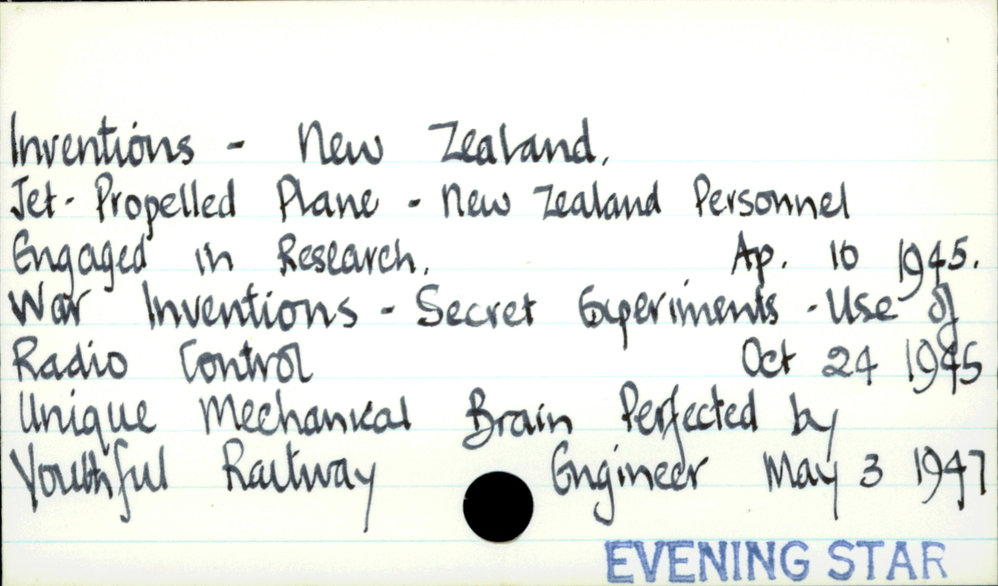 Inventions - New Zealand.
Jet-Propelled Plane - New Zealand Personnel
Engaged in Research. Ap. 10 1945.
War Inventions - Secret Experiments - Use of
Radio Control Oct 24 1945
Unique Mechanical Brain Perfected by
Youthful Railway Engineer May 3 1947
EVENING STAR